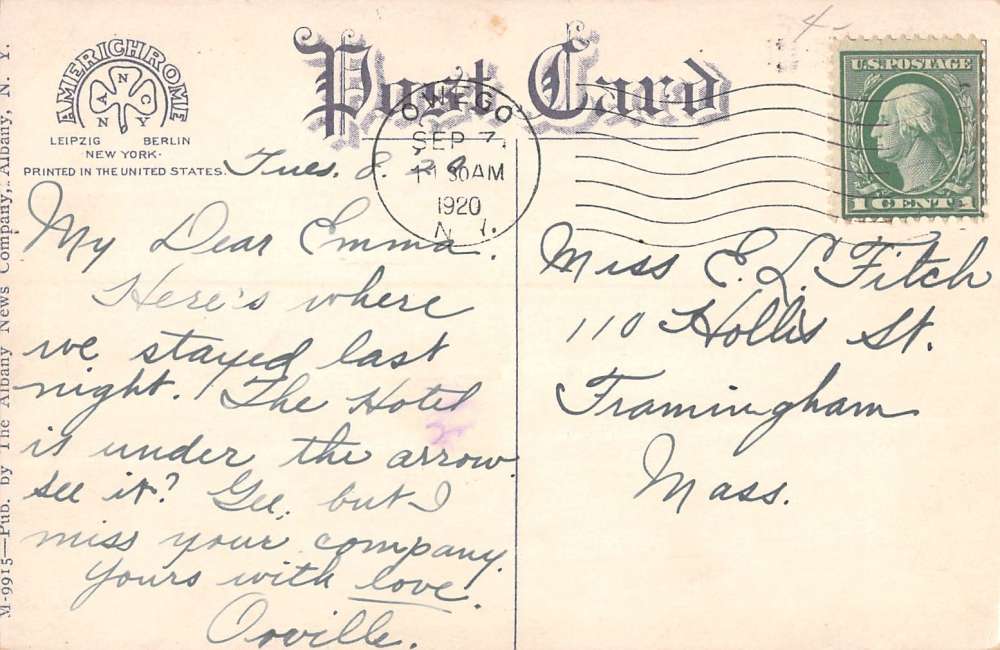 4
AMERICHROME
ANCNY
LEIPZIG BERLIN
·NEW YORK·
PRINTED IN THE UNITED STATES.
Post Card
OWEGO
SEP 7
11 30 AM
1920
N.
U.S. POSTAGE
1 CENT 1
M-9915—Pub. by The Albany News Company, Albany, N. Y.
Tues. 8.
My Dear Emma.
Here's where
we stayed last
night. The Hotel
is under the arrow
see it? Gee, but I
miss your company.
Yours with love.
Orville.
Miss E. L. Fitch
110 Hollis St.
Framingham
Mass.